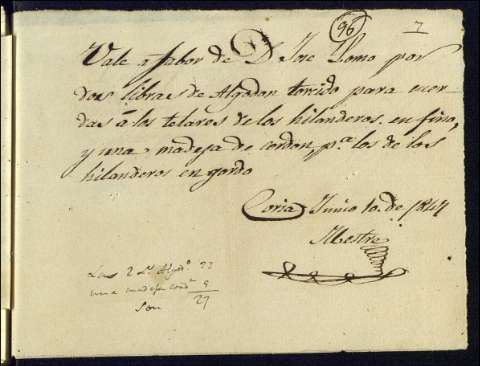 96 7
Vale a fabor de D. Jose Romo por
dos libras de Algodon torcido para cuer-
das á los telares de los hilanderos en fino,
y una madeja de cordon, pª los de los
hilanderos en gordo
Coria Junio 10. de 1847
Mestre
Las 2 Ls. Algodn. 22
una madeja cordn. 5
Son 27